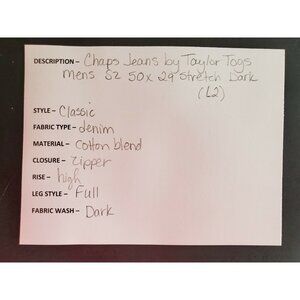 DESCRIPTION – Chaps Jeans by Taylor Togs
mens sz 50x29 stretch Dark
(L2)
STYLE – Classic
FABRIC TYPE – denim
MATERIAL – cotton blend
CLOSURE – zipper
RISE – high
LEG STYLE – Full
FABRIC WASH – Dark